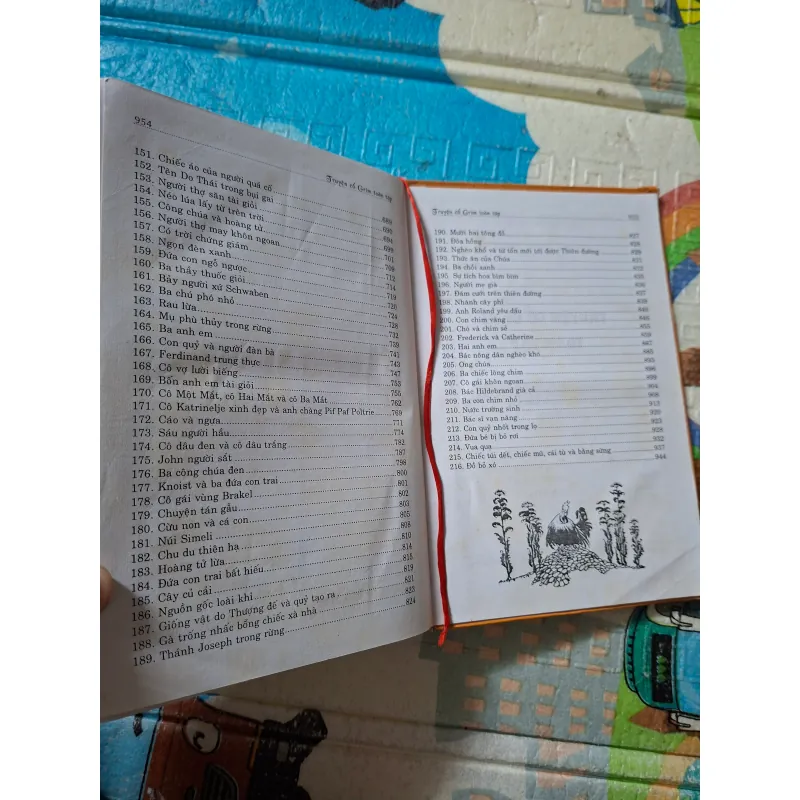 954
Truyện cổ Grim toàn tập
151. Chiếc áo của người quá cố
152. Tên Do Thái trong bụi gai
153. Người thợ săn tài giỏi 689
154. Néo lúa lấy từ trên trời 695
155. Công chúa và hoàng tử 694
156. Người thợ may khôn ngoan 699
157. Có trời chứng giám 701
158. Ngọn đèn xanh 709
159. Đứa con ngỗ ngược 712
160. Ba thầy thuốc giỏi 714
161. Bảy người xứ Schwaben 719
162. Ba chú phó nhỏ 720
163. Rau lừa 724
164. Mụ phù thủy trong rừng 728
165. Ba anh em 732
166. Con quỷ và người đàn bà 741
167. Ferdinand trung thực 743
168. Cô vợ lười biếng 747
169. Bốn anh em tài giỏi 753
170. Cô Một Mắt, cô Hai Mắt và cô Ba Mắt 755
171. Cô Katrinelje xinh đẹp và anh chàng Pif Paf Poltrie 762
172. Cáo và ngựa 769
173. Sáu người hầu 771
174. Cô dâu đen và cô dâu trắng 774
175. John người sắt 782
176. Ba công chúa đen 787
177. Knoist và ba đứa con trai 798
178. Cô gái vùng Brakel 800
179. Chuyện tán gẫu 801
180. Cừu non và cá con 802
181. Núi Simeli 803
182. Chu du thiên hạ 805
183. Hoàng tử lừa 808
184. Đứa con trai bất hiếu 810
185. Cây củ cải 814
186. Nguồn gốc loài khỉ 818
187. Giống vật do Thượng đế và quỷ tạo ra 819
188. Gà trống nhấc bổng chiếc xà nhà 821
189. Thánh Joseph trong rừng 823
824
Truyện cổ Grim toàn tập
190. Mười hai tông đồ 827
191. Đóa hồng 828
192. Nghèo khổ và từ tốn mới tới được Thiên đường 829
193. Thức ăn của Chúa 831
194. Ba chồi xanh 832
195. Sự tích hoa bìm bìm 835
196. Người mẹ già 836
197. Đám cưới trên thiên đường 837
198. Nhành cây phỉ 839
199. Anh Roland yêu dấu 840
200. Con chim vàng 846
201. Chó và chim sẻ 855
202. Frederick và Catherine 859
203. Hai anh em 867
204. Bác nông dân nghèo khó 885
205. Ong chúa 895
206. Ba chiếc lông chim 896
207. Cô gái khôn ngoan 899
208. Bác Hildebrand già cả 904
209. Ba con chim nhỏ 908
210. Nước trường sinh 913
211. Bác sĩ vạn năng 920
212. Con quỷ nhốt trong lọ 923
213. Đứa bé bị bỏ rơi 928
214. Vua quạ 932
215. Chiếc túi dết, chiếc mũ, cái tù và bằng sừng 937
216. Đồ bỏ xó 944